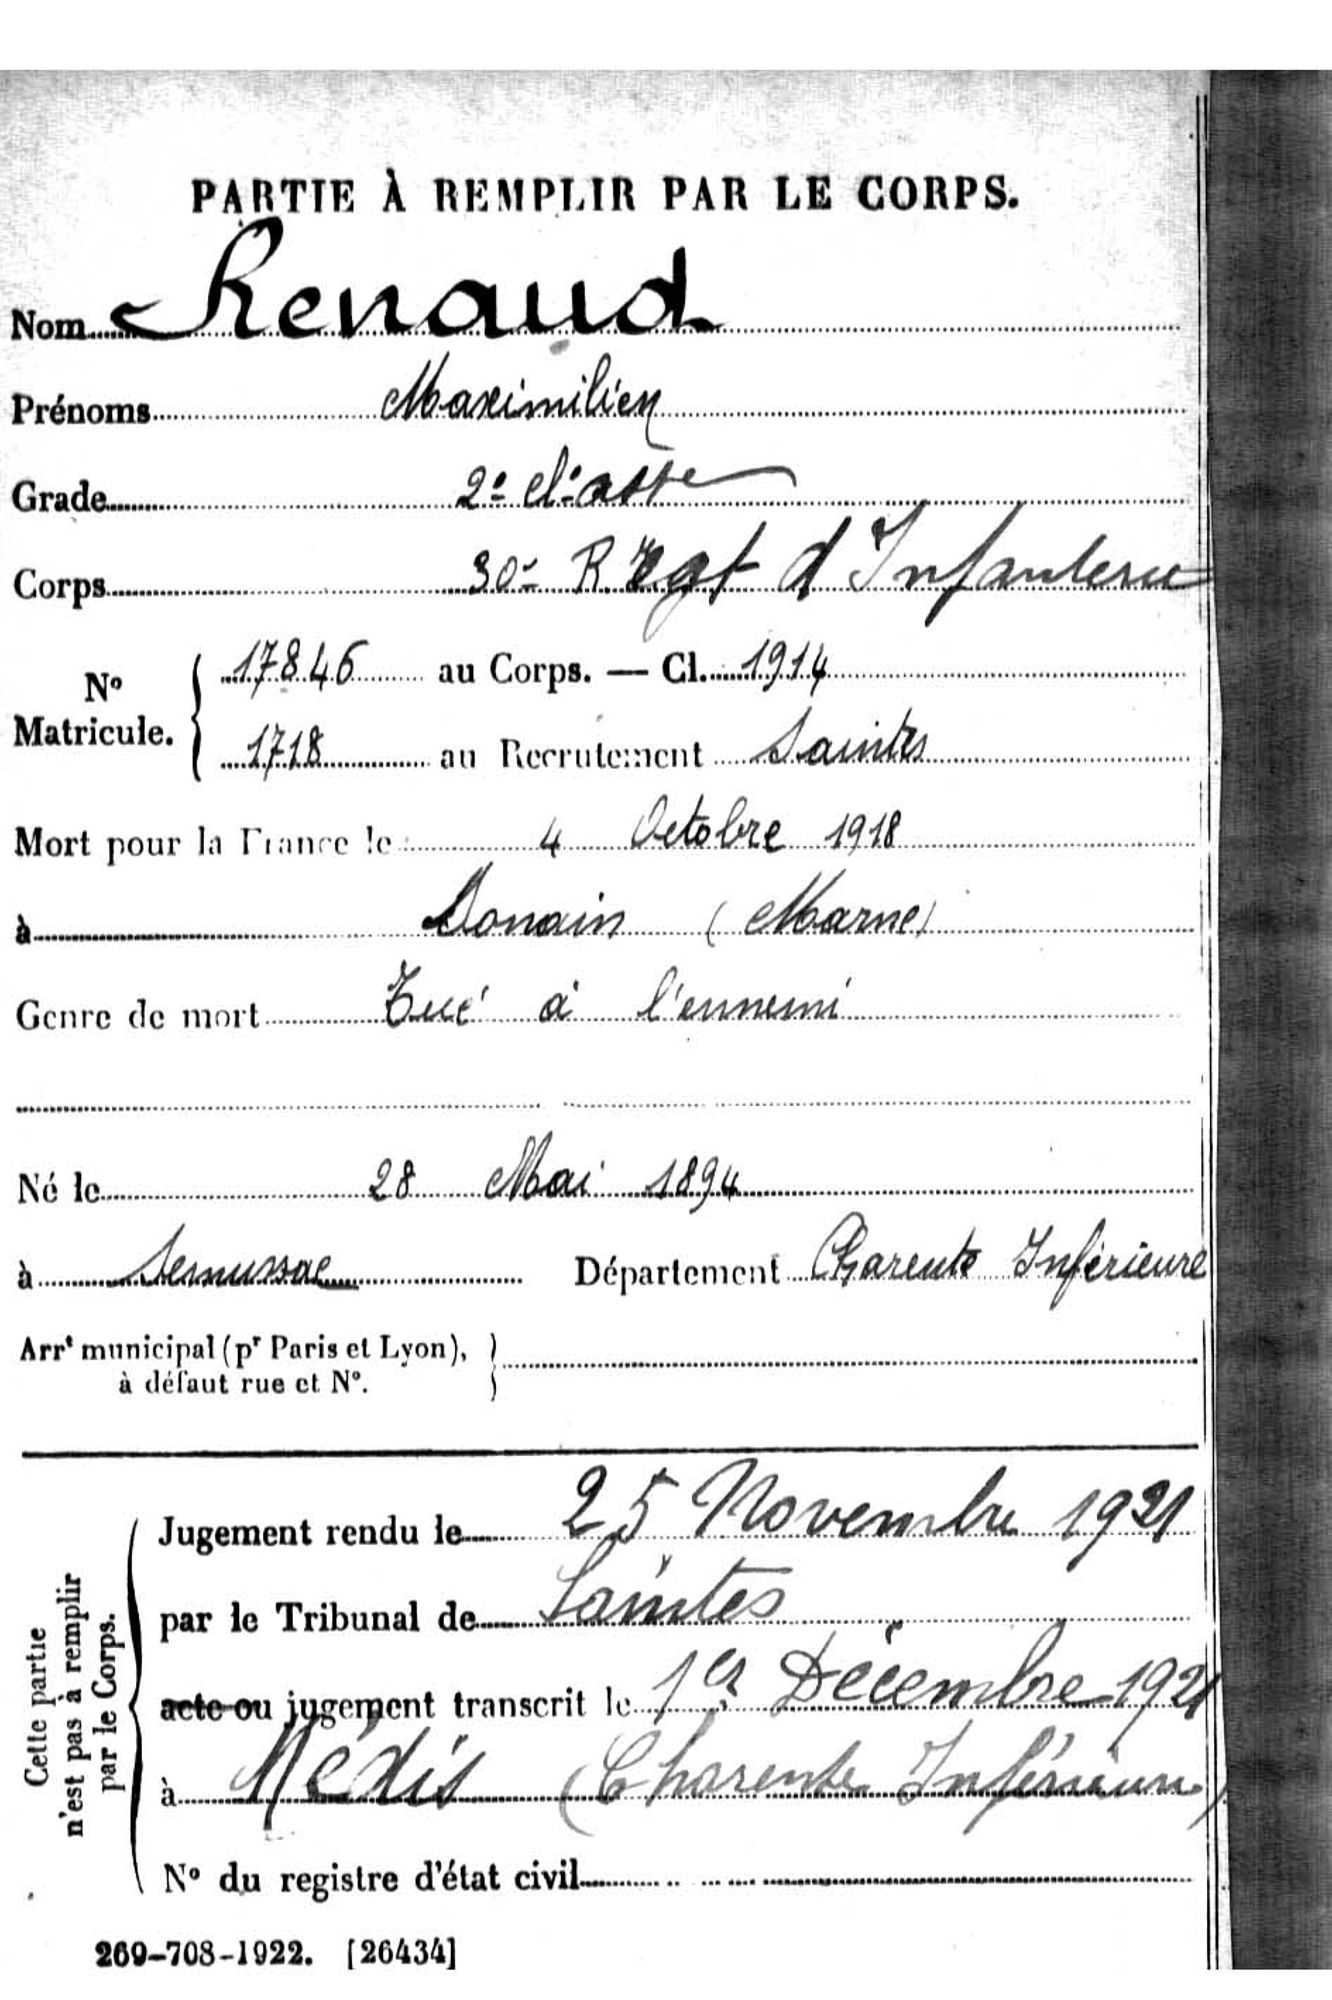 PARTIE À REMPLIR PAR LE CORPS.
Nom Renaud
Prénoms Maximilien
Grade 2e classe
Corps 30e R Regt d'Infanterie
No Matricule. 17846 au Corps. — Cl. 1914
1718 au Recrutement Saintes
Mort pour la France le 4 Octobre 1918
à Donain (Marne)
Genre de mort Tué à l'ennemi
Né le 28 Mai 1894
à Semussac Département Charente Inférieure
Arrt municipal (pr Paris et Lyon),
à défaut rue et No.
Cette partie
n'est pas à remplir
par le Corps.
Jugement rendu le 25 Novembre 1921
par le Tribunal de Saintes
acte ou jugement transcrit le 1er Décembre 1921
à Médis (Charente Inférieure)
No du registre d'état civil
269-708-1922. [26434]